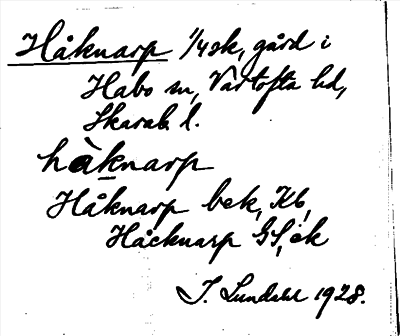 Håknarp 1/4 sk, gård i
Habo sn, Vartofta hd,
Skarab. l.
hàknarp
Håknarp bek, Kb,
Håcknarp GS, ek
I. Lundahl 1928.